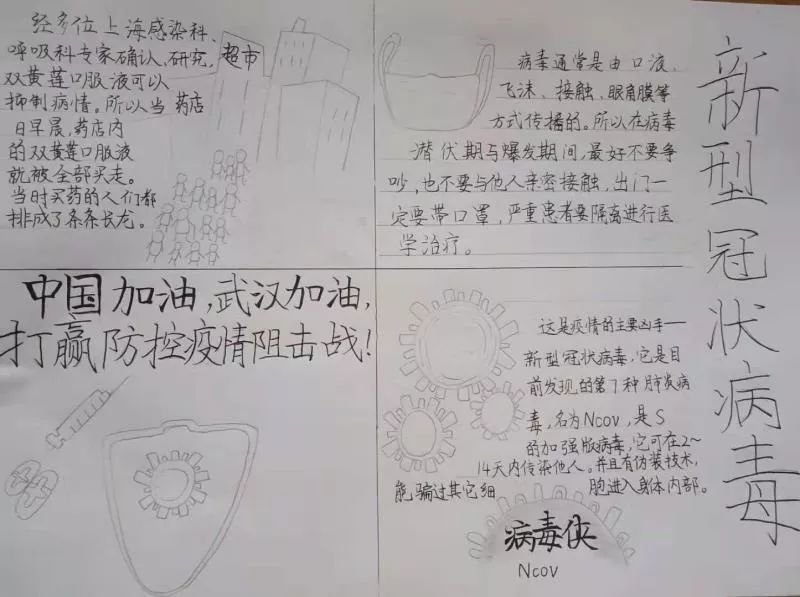 新型冠状病毒
经多位上海感染科、
呼吸科专家确认、研究,
双黄莲口服液可以
抑制病情。所以当
日早晨,药店内
的双黄莲口服液
就被全部买走。
当时买药的人们都
排成了条条长龙。
超市
药店
病毒通常是由口液、
飞沫、接触、眼角膜等
方式传播的。所以在病毒
潜伏期与爆发期间,最好不要争
吵,也不要与他人亲密接触,出门一
定要带口罩,严重患者要隔离进行医
学治疗。
中国加油,武汉加油,
打赢防控疫情阻击战!
这是疫情的主要凶手——
新型冠状病毒,它是目
前发现的第7种肺炎病
毒,名为Ncov,是S
的加强版病毒,它可在2~
14天内传染他人。并且有伪装技术,
能骗过其它细胞进入身体内部。
病毒侠
Ncov